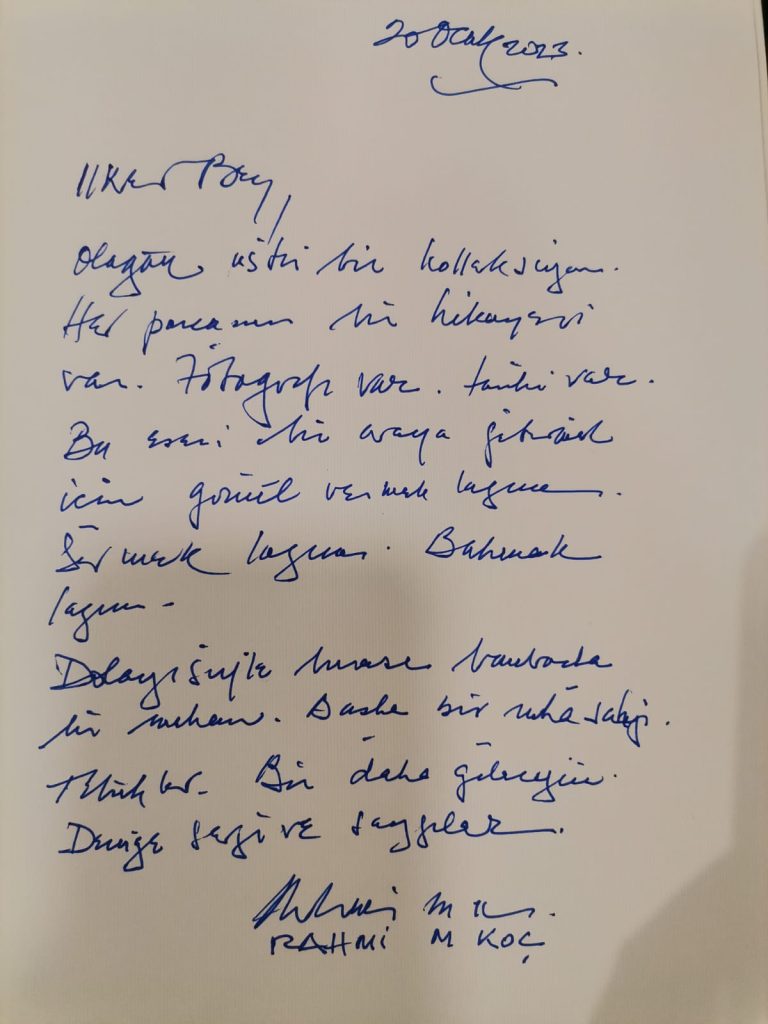 20 Ocak 2023.
İlker Bey,
Olağan üstü bir kolleksiyon.
Her parçanın bir hikayesi
var. Fotografı var. tarihi var.
Bu eseri bir araya getirmek
için gönül vermek lazım.
Sevmek lazım. Bakmak
lazım.
Dolayısıyle burası bambaşka
bir mekan. Başka bir ruha sahip.
Tebrikler. Bir daha geleceğim.
Denize sevgi ve saygılar.
RAHMİ M KOÇ